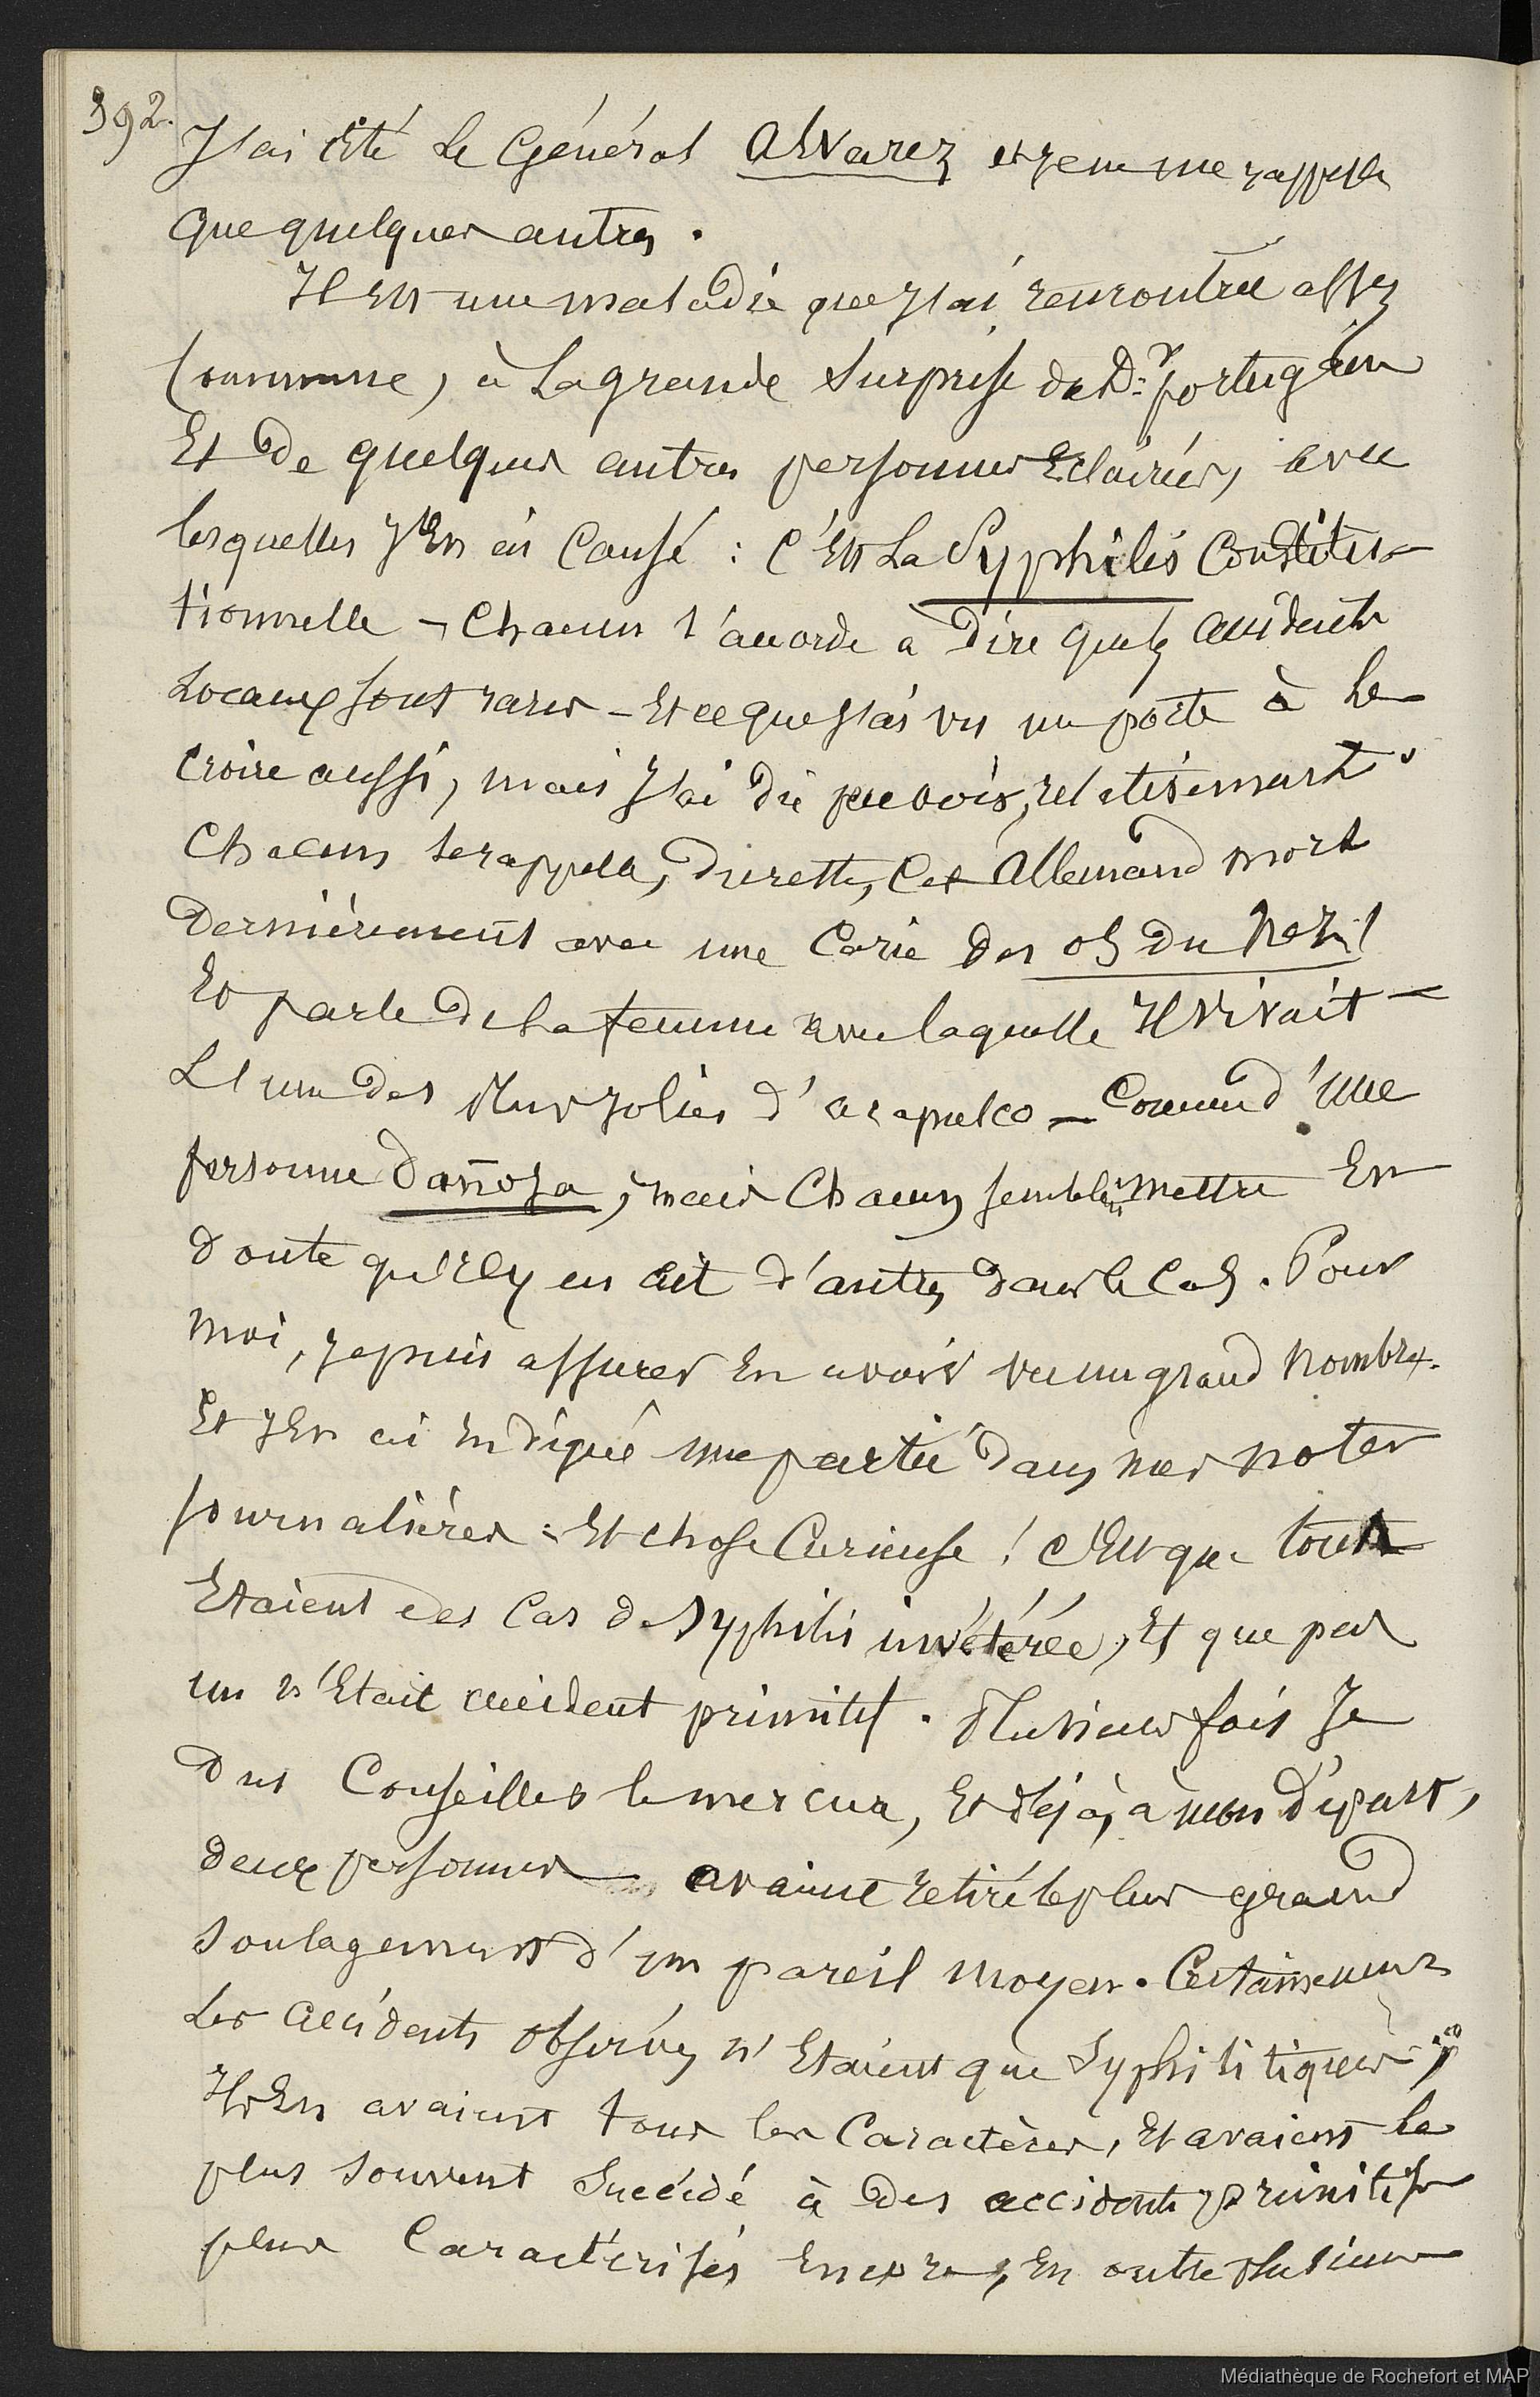 392.
J'ai cité le Général Alvarez et je ne me rappelle
que quelques autres.
Il est une maladie que j'ai rencontrée assez
commune, à la grande surprise de Dr. portugain
Et de quelques autres personnes Eclairées, avec
lesquelles j'En ai Causé : C'Est La Syphilis Constitu-
tionnelle - Chacun s'accorde à Dire que les accidents
Locaux sont rares - Et ce que j'ai vu me porte à le
Croire aussi, mais j'ai dû peu voir, relativement.
Chacun se rappelle, Cet Allemand mort
Dernièrement avec une Carie des os du Nez,
Et parle de la femme avec laquelle Il Vivait -
L'une des plus jolies d'acapulco - Comme d'une
personne dañosa, mais Chacun semblait mettre En
doute qu'il y en ait d'autres dans le Cas. Pour
Moi, je puis assurer En avoir vu un grand Nombre.
Et j'En ai indiqué une partie dans mes notes
journalières : Et chose Curieuse ! C'Est que tous
Etaient des Cas de syphilis invétérée, Et que pas
un n'Etait accident primitif. Plusieurs fois Je
dus Conseiller le mercure, Et déjà, à mon Départ,
deux personnes avaient retiré le plus grand
soulagement d'un pareil moyen. Certainement
Les accidents observés n'Etaient que Syphilitiques ;
Ils En avaient tous les Caractères, Et avaient le
plus souvent Succédé à des accidents primitifs
plus Caractérisés Encore, En outre plusieurs
Médiathèque de Rochefort et MAP